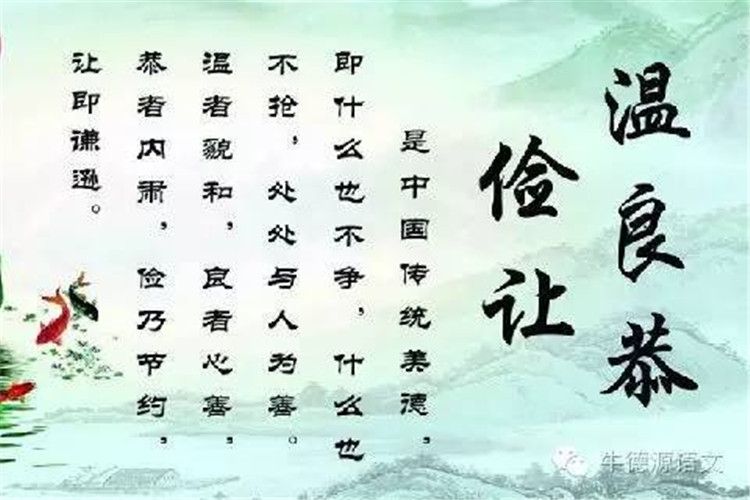 温良恭
俭让
是中国传统美德，
即什么也不争，什么也
不抢，处处与人为善。
温者貌和，良者心善，
恭者内肃，俭乃节约，
让即谦逊。
牛德源语文